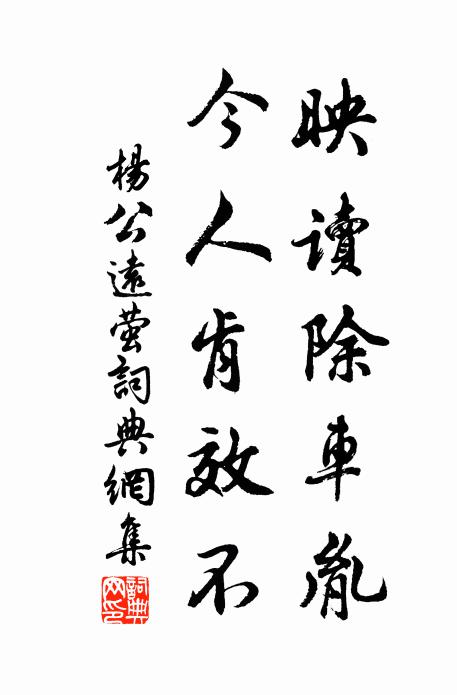 映讀除車胤
今人肯效不
楊公遠螢詞典網集
詞典網印